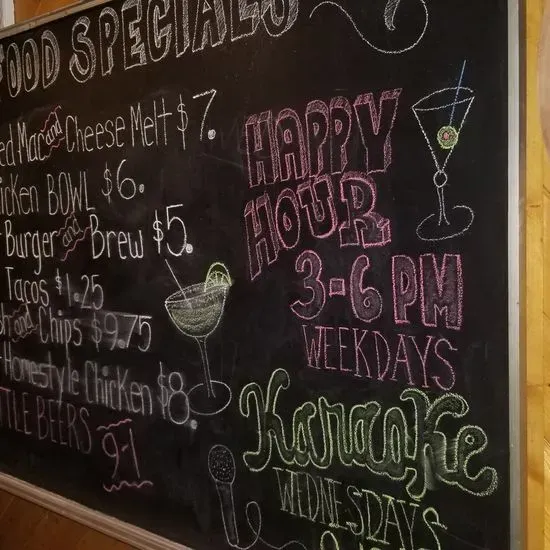 FOOD SPECIALS
ed Mac and Cheese Melt $7.
icken BOWL $6.
Burger and Brew $5.
Tacos $1.25
sh and Chips $9.75
Homestyle Chicken $8.
TTLE BEERS 9-1
HAPPY
HOUR
3-6 PM
WEEKDAYS
Karaoke
WEDNESDAYS